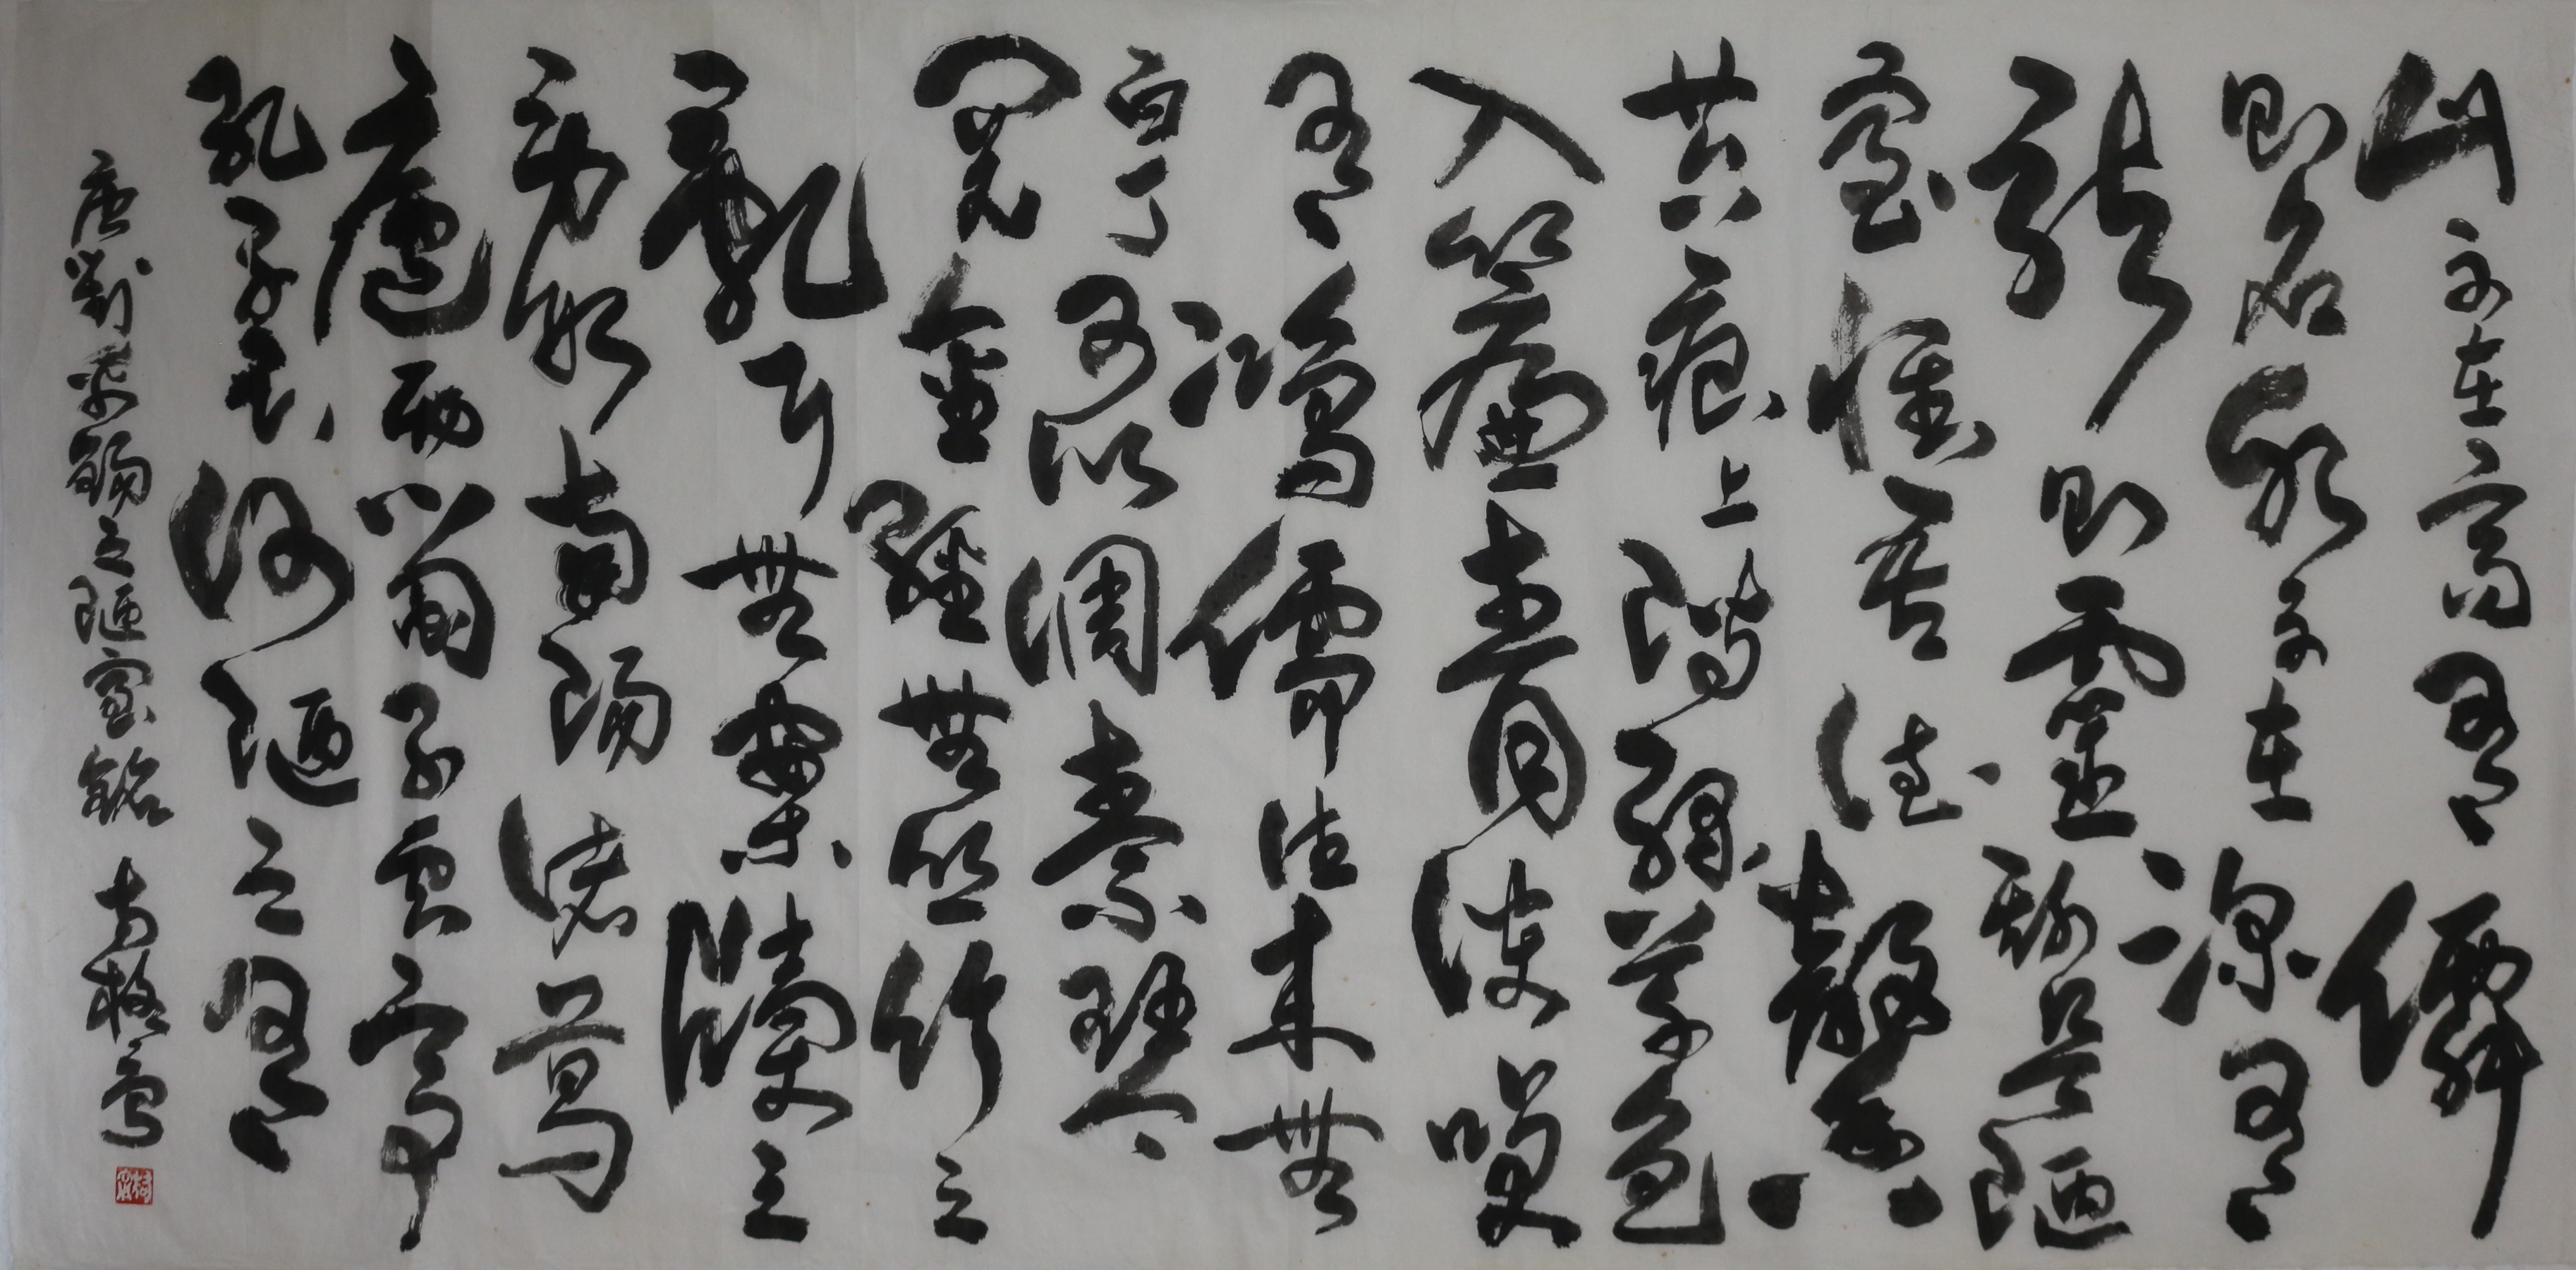 山不在高有僊
則名水不在深有
龍則靈斯是陋
室惟吾德馨
苔痕上階綠草色
入簾青談笑
有鴻儒往來無
白丁可以調素琴
閱金經無絲竹之
亂耳無案牘之
勞形南陽諸葛
廬西蜀子雲亭
孔子云何陋之有
唐劉禹錫之陋室銘